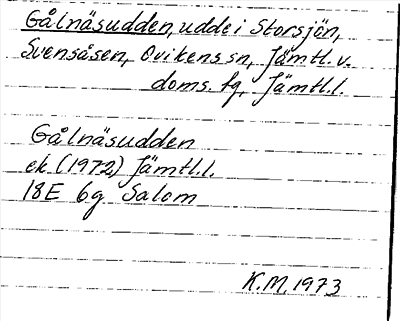 Gålnäsudden, udde i Storsjön,
Svensåsen, Ovikens sn, Jämtl. v.
doms. fg, Jämtl.l.
Gålnäsudden
ek (1972) Jämtl.l.
18E 6g Salom
K.M. 1973